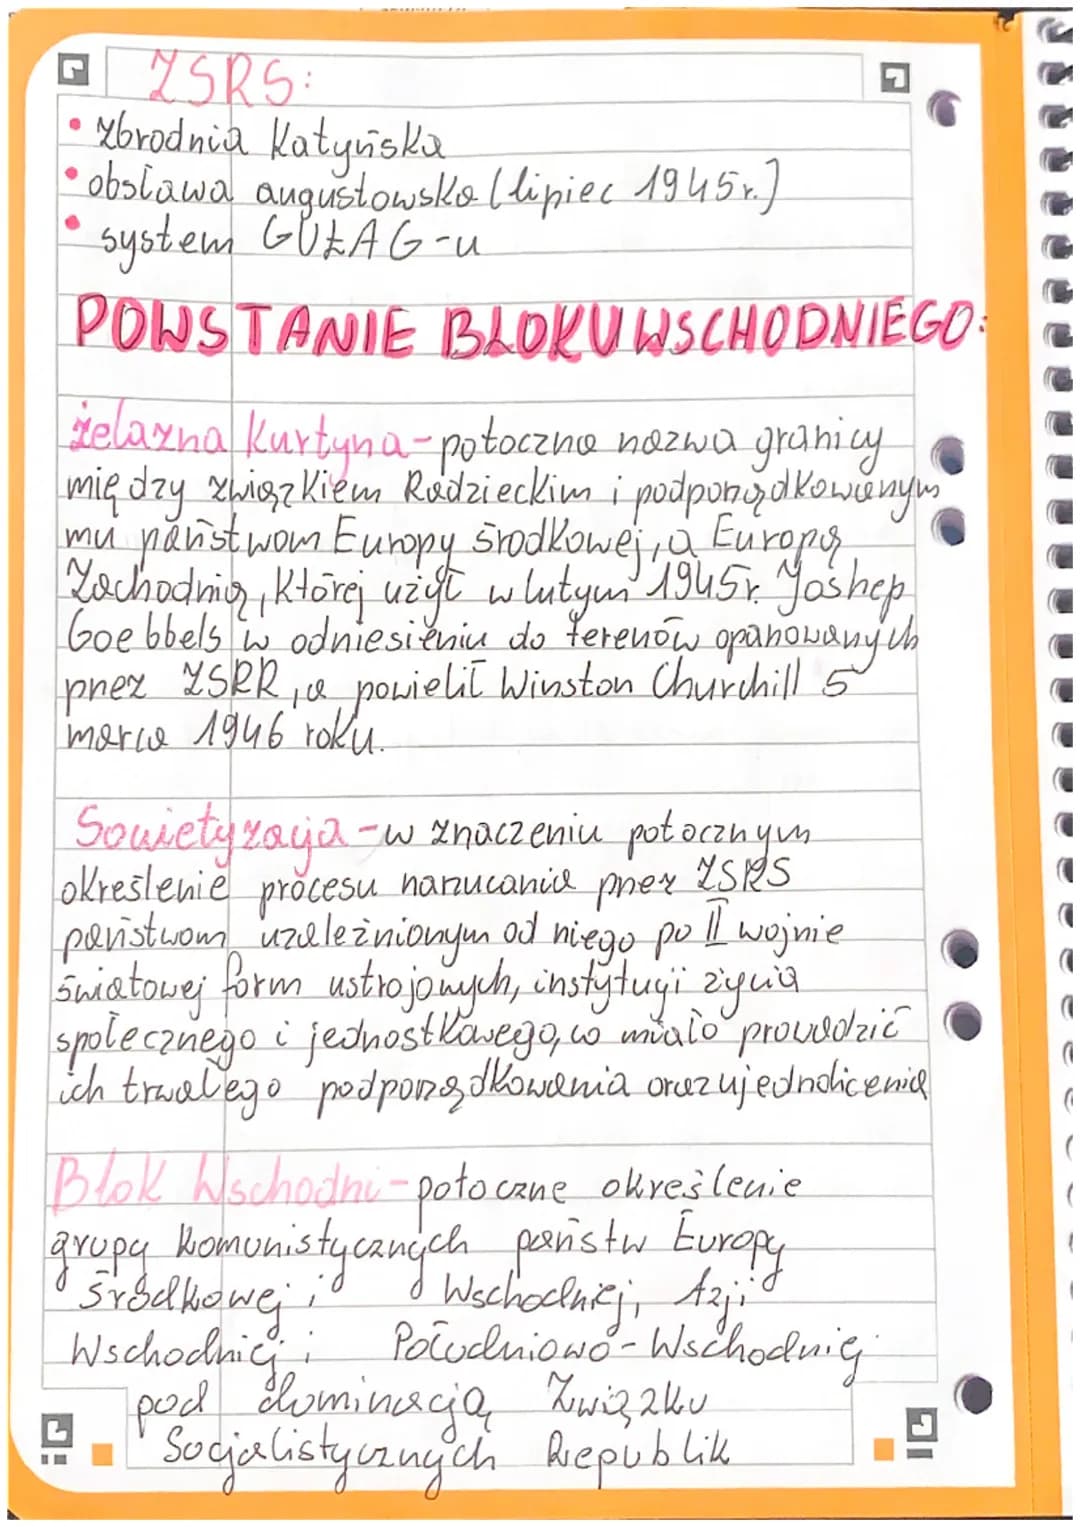 ZSRS:
• zbrodnia Katyńska
• obława augustowska (lipiec 1945r.)
• system GUŁAG-u
POWSTANIE BLOKU WSCHODNIEGO:
żelazna Kurtyna - potoczna nazwa granicy
między związkiem Radzieckim i podporządkowanym
mu państwom Europy środkowej, a Europą
Zachodnią, której użył w lutym 1945r. Joshep
Goebbels w odniesieniu do terenów opanowanych
przez ZSRR, a powielił Winston Churchill 5
marca 1946 roku.
Sowietyzacja - w znaczeniu potocznym
określenie procesu narzucania przez ZSRS
państwom uzależnionym od niego po II wojnie
światowej form ustrojowych, instytucji życia
społecznego i jednostkowego, co miało prowadzić
ich trwałego podporządkowania oraz ujednolicenia
Blok Wschodni - potoczne określenie
grupy komunistycznych państw Europy
Środkowej i Wschodniej, Azji
Wschodniej i Południowo-Wschodniej
pod dominacją Związku
Socjalistycznych Republik